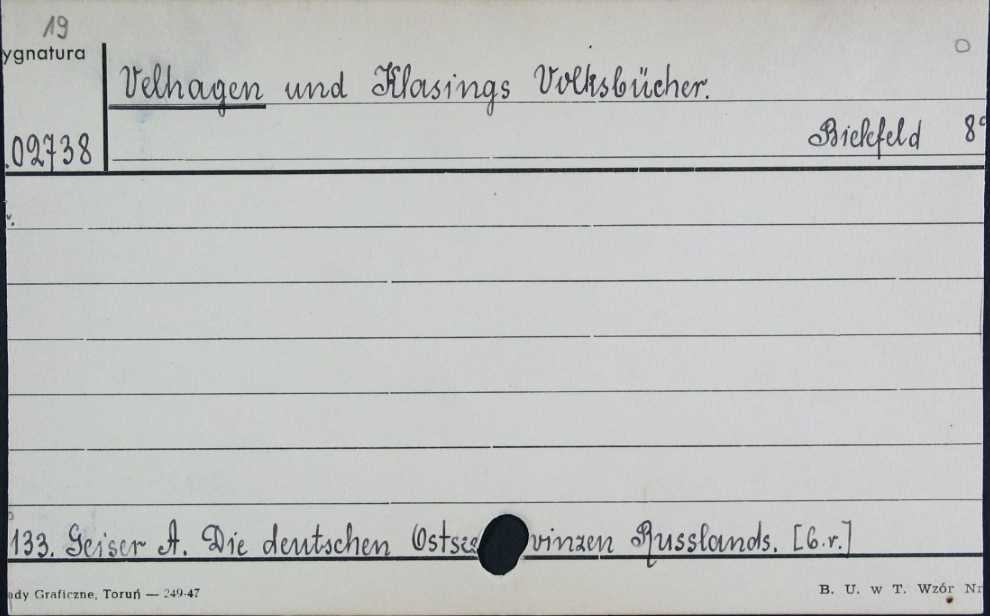 19
ygnatura
Velhagen und Klasings Volksbücher.
02738
Bielefeld 8°
133. Geiser A. Die deutschen Ostse vinzen Russlands. [B.r.]
ady Graficzne, Toruń — 249-47
B. U. w T. Wzór Nr